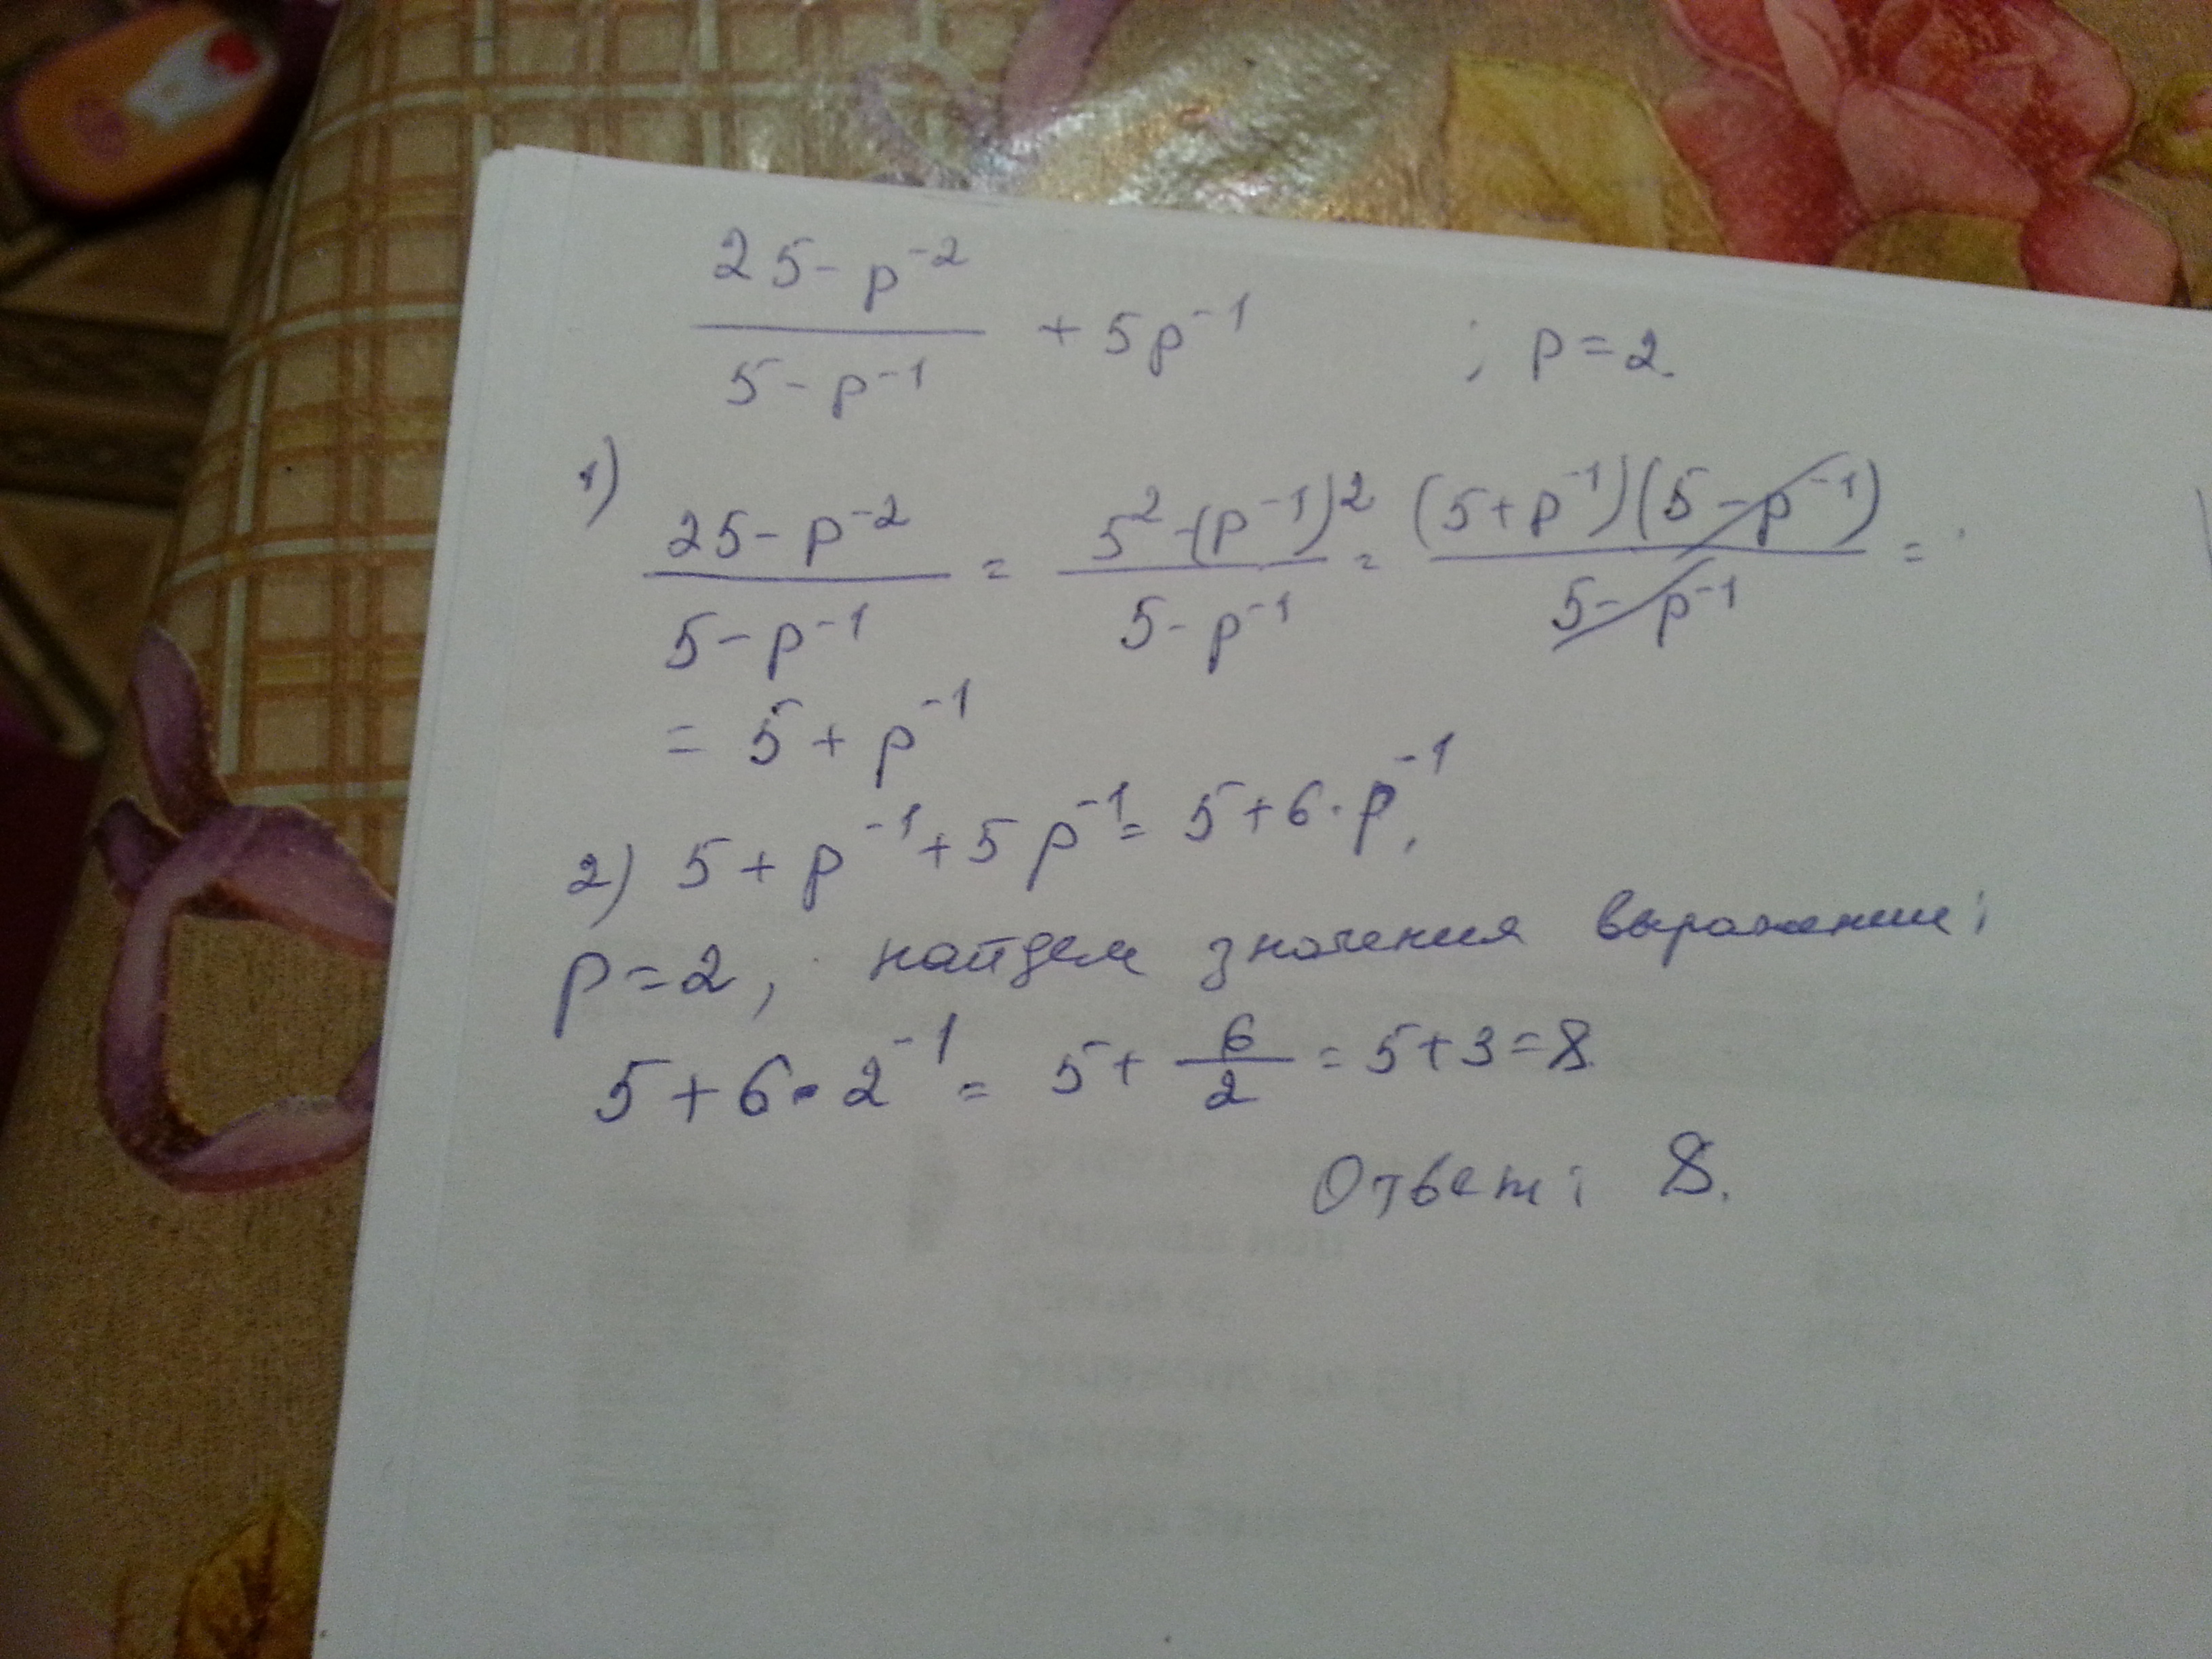 25 - p⁻² / 5 - p⁻¹ + 5p⁻¹ ; p = 2.
1) 25 - p⁻² / 5 - p⁻¹ = 5² - (p⁻¹)² / 5 - p⁻¹ = (5 + p⁻¹)(5 - p⁻¹) / 5 - p⁻¹ =
= 5 + p⁻¹
2) 5 + p⁻¹ + 5p⁻¹ = 5 + 6 · p⁻¹,
p = 2, найдем значения выражении:
5 + 6 · 2⁻¹ = 5 + 6/2 = 5 + 3 = 8
Ответ: 8.